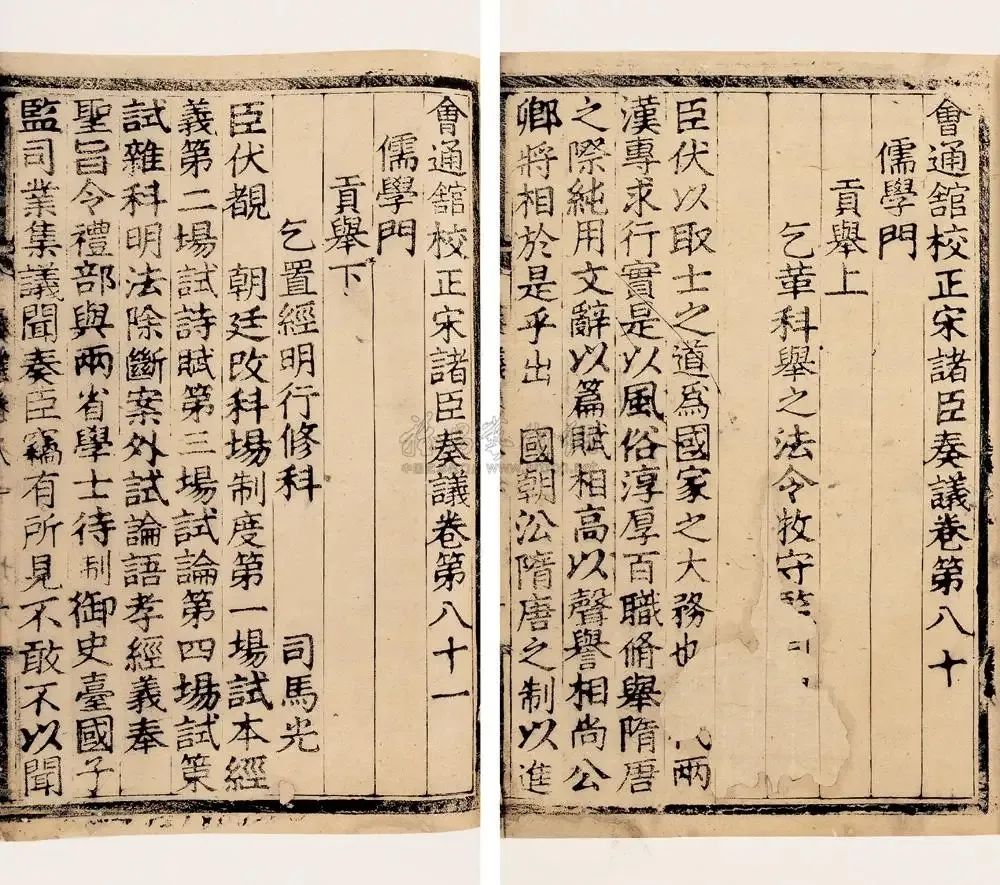 會通舘校正宋諸臣奏議卷第八十
儒學門
貢舉上
乞革科舉之法令牧守
臣伏以取士之道爲國家之大務也 兩
漢專求行實是以風俗淳厚百職脩舉隋唐
之際純用文辭以篇賦相高以聲譽相尚公
卿將相於是乎出 國朝㳂隋唐之制以進
會通舘校正宋諸臣奏議卷第八十一
儒學門
貢舉下
乞置經明行修科 司馬光
臣伏覩 朝廷改科場制度第一場試本經
義第二場試詩賦第三場試論第四場試策
試雜科明法除斷案外試論語孝經義奉
聖旨令禮部與兩省學士待制御史臺國子
監司業集議聞奏臣竊有所見不敢不以聞